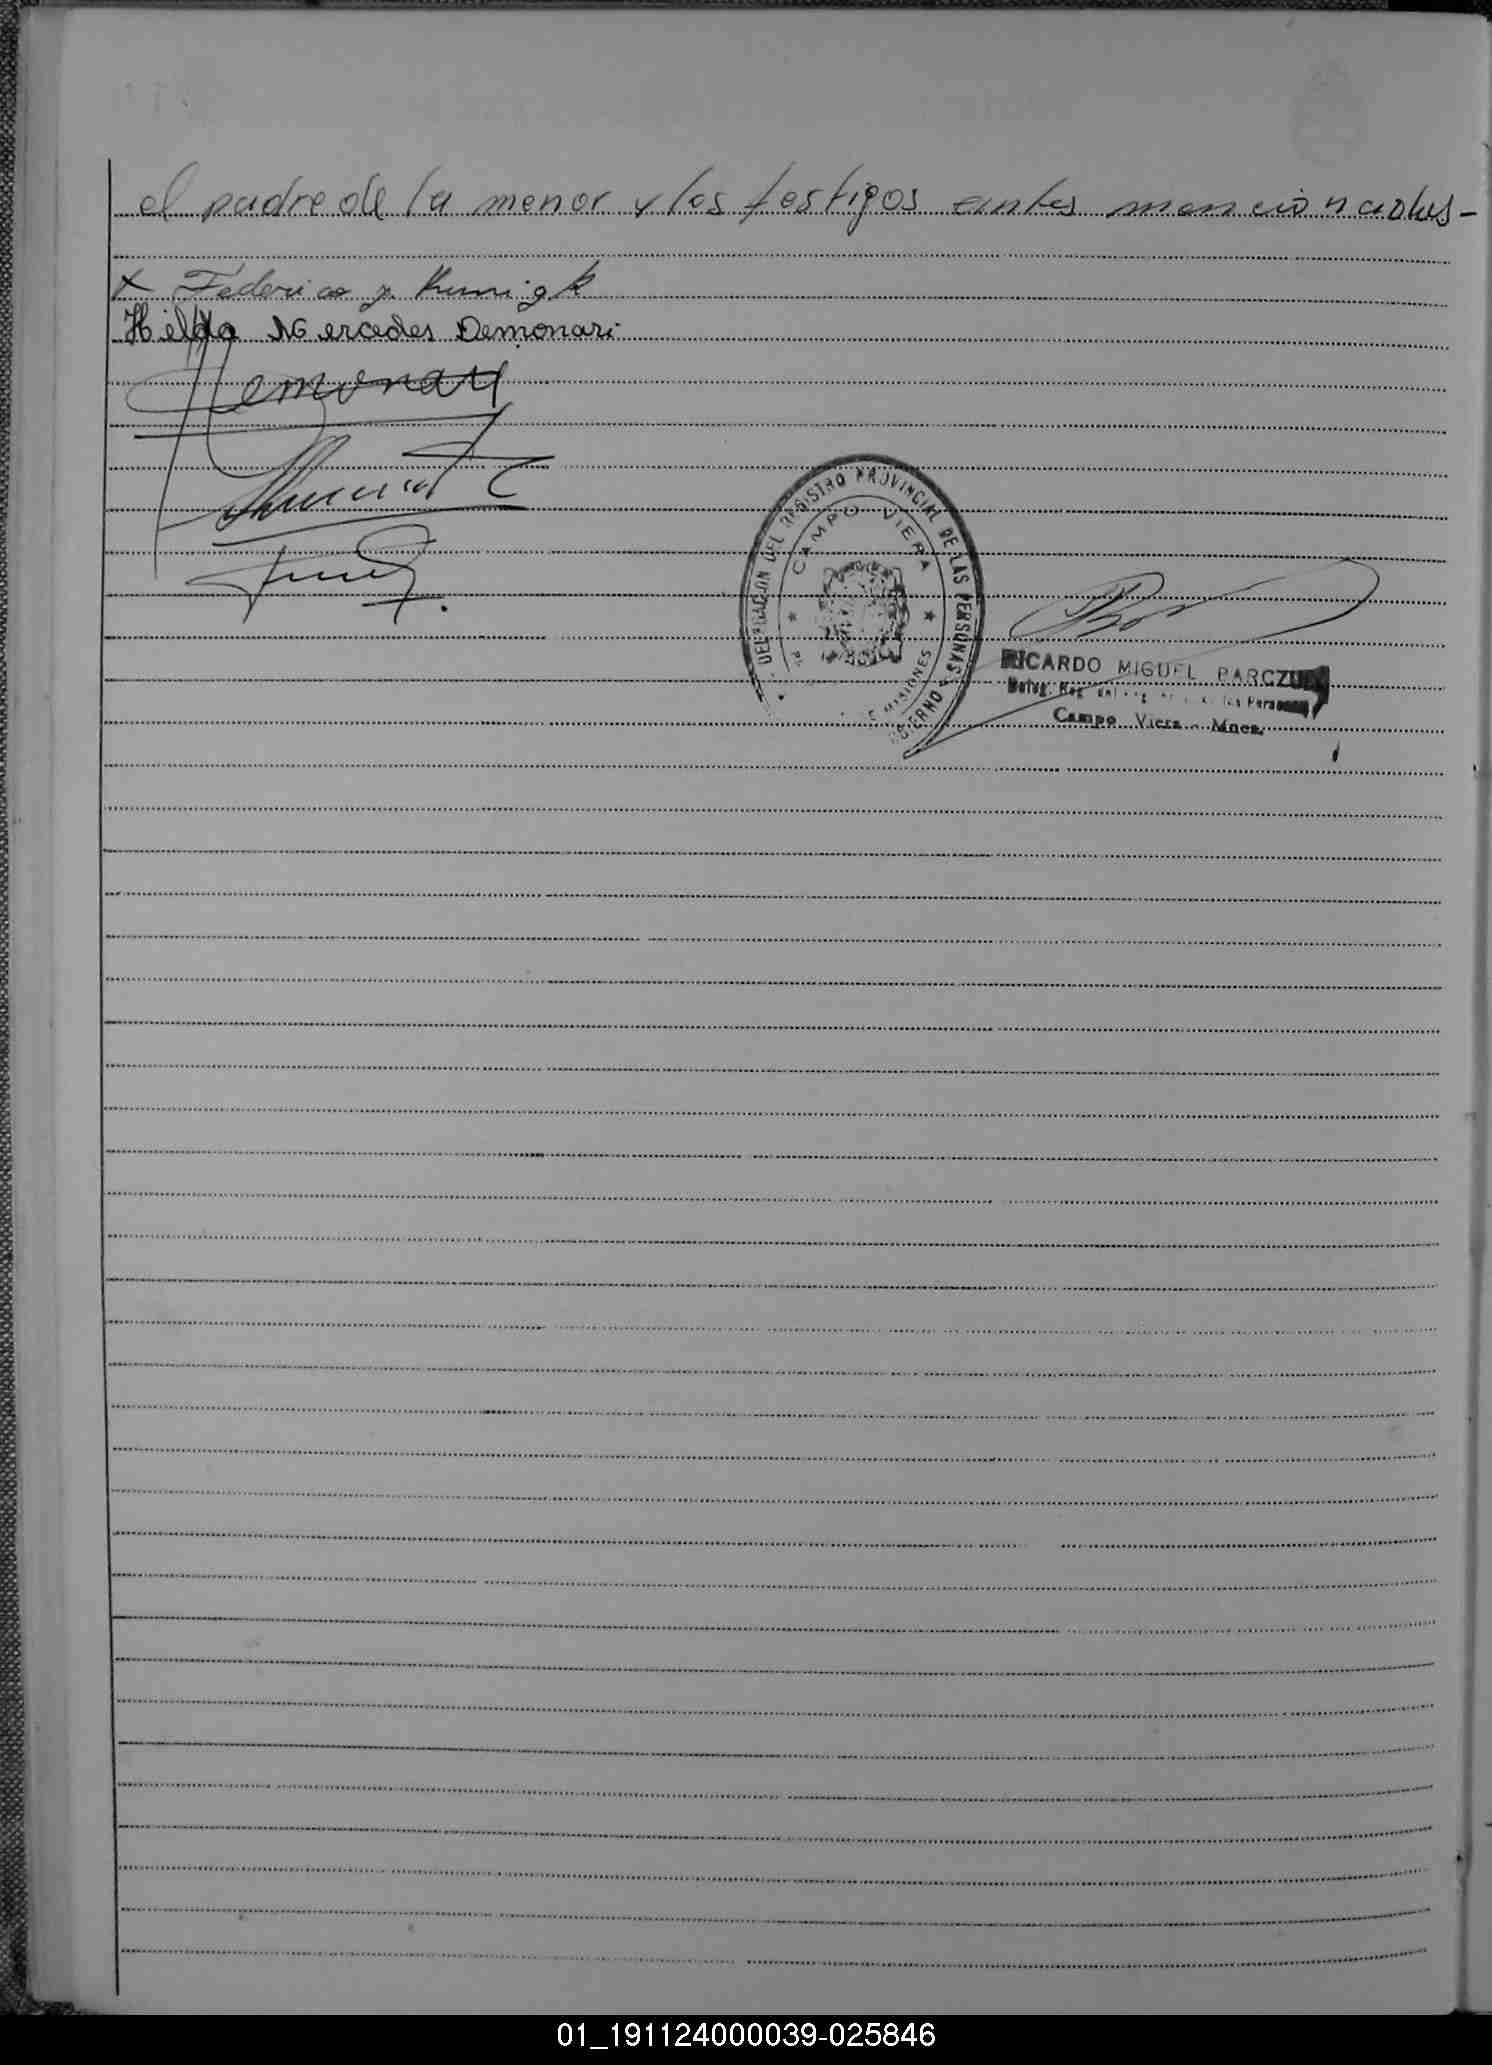 el padre de la menor y los testigos antes mencionados-
x Federico
Hilda Mercedes Demonari
Demonari
DELEGACION DEL REGISTRO PROVINCIAL DE LAS PERSONAS
CAMPO VIERA
DE MISIONES
GOBIERNO
RICARDO MIGUEL PARCZUK
Deleg. Reg. de las Personas
Campo Viera - Mnes.
01_191124000039-025846